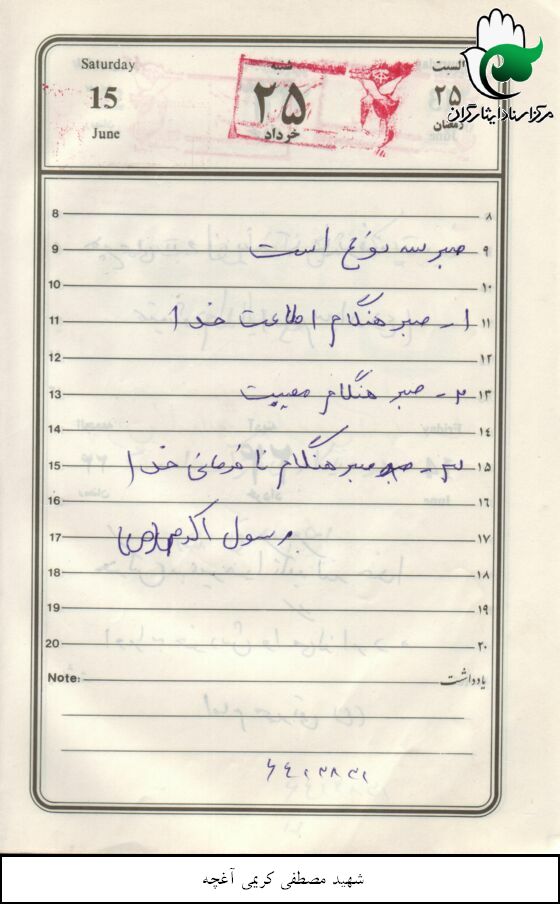 Saturday
15
June
شنبه
۲۵
خرداد
السبت
۲۵
رمضان
مرکز اسناد ایثارگران
8 ۸
9 صبر سه نوع است ۹
10 ۱۰
11 ۱ـ صبر هنگام اطاعت خدا ۱۱
12 ۱۲
13 ۲ـ صبر هنگام مصیبت ۱۳
14 ۱۴
15 ۳ـ صبر هنگام نافرمانی خدا ۱۵
16 ۱۶
17 رسول اکرم (ص) ۱۷
18 ۱۸
19 ۱۹
20 ۲۰
Note: یادداشت
شهید مصطفی کریمی آغچه